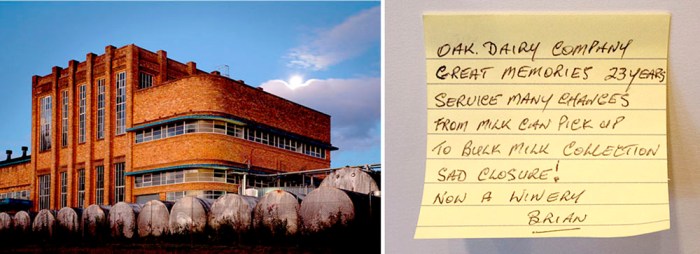 OAK. DAIRY COMPANY
GREAT MEMORIES 23 YEARS
SERVICE MANY CHANGES
FROM MILK CAN PICK UP
TO BULK MILK COLLECTION
SAD CLOSURE!
NOW A WINERY
BRIAN